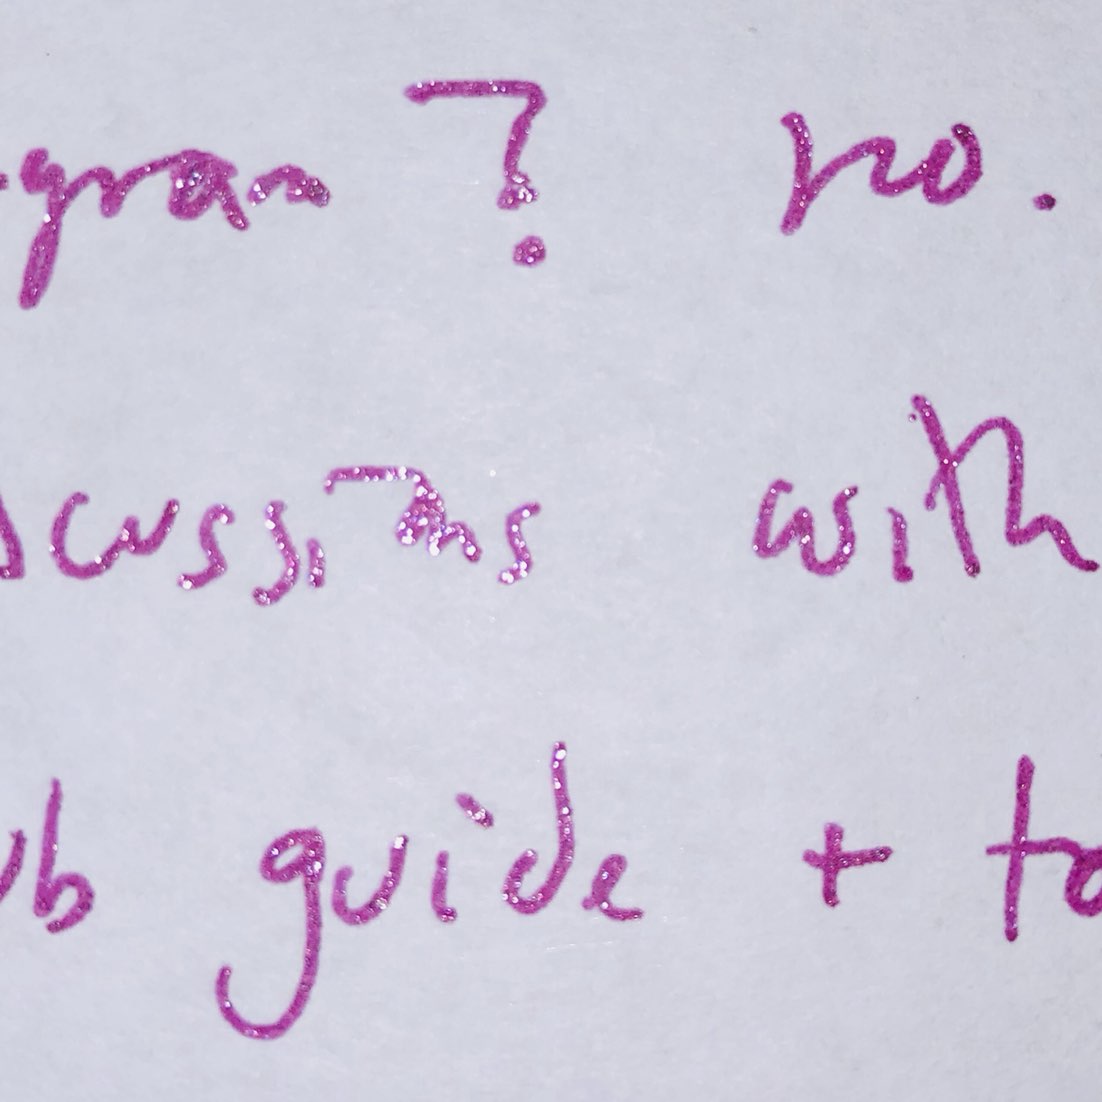 gram ? no.
cussions with
ub guide + to